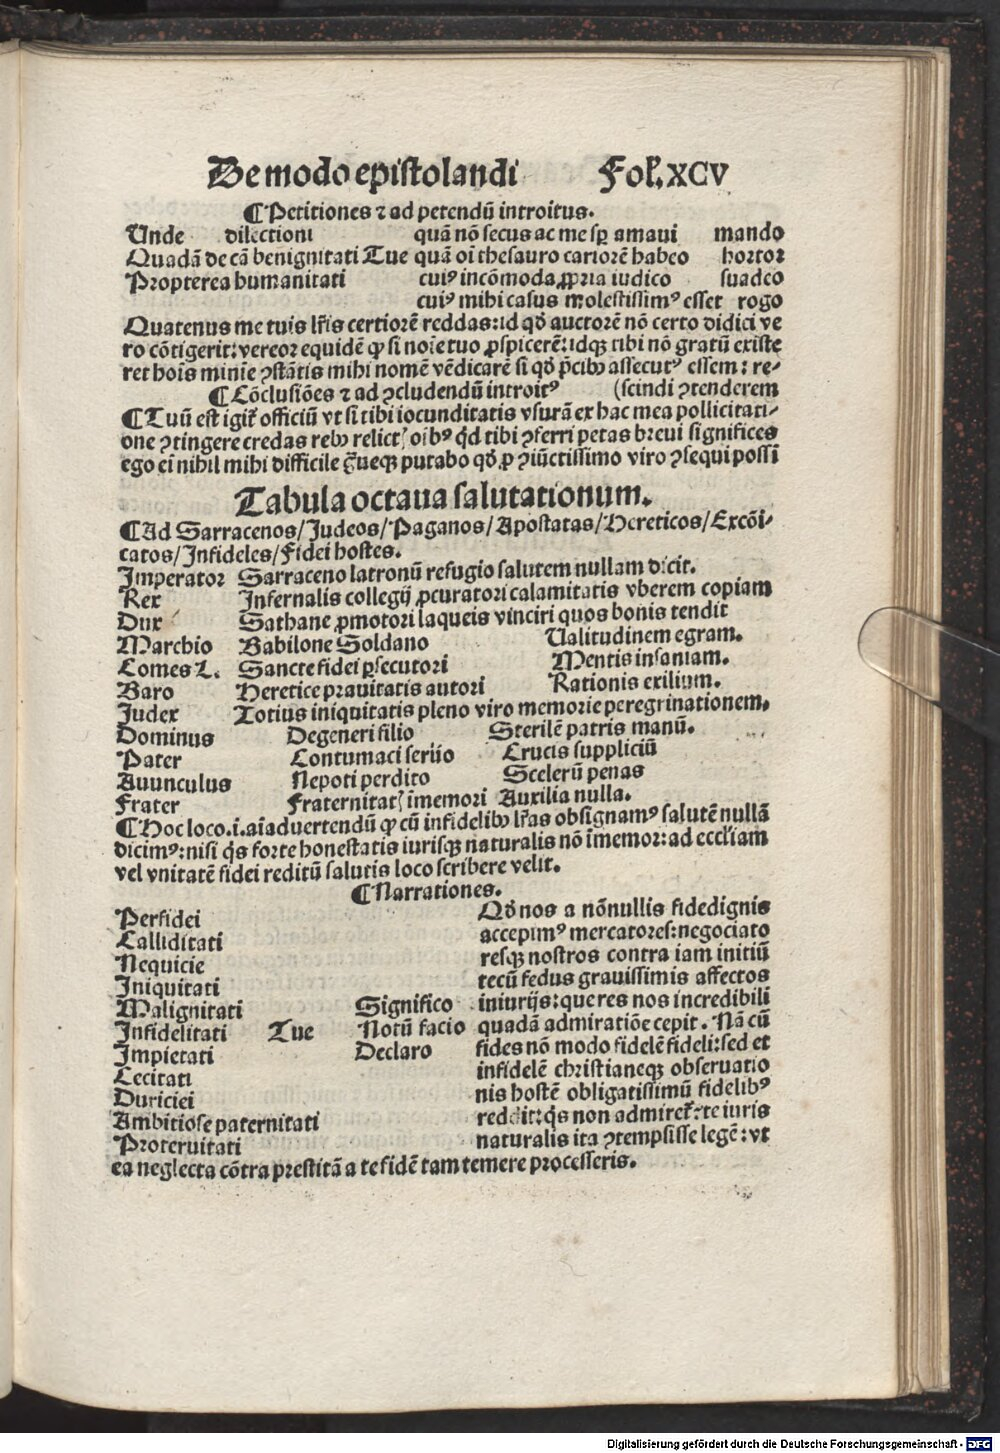 De modo epistolandi Fol. XCV
¶Petitiones ⁊ ad petendū introitus.
Unde dilectioni quā nō secus ac me sꝑ amaui mando
Quadā de cā benignitati Tue quā oī thesauro cariorē habeo hortor
Propterea humanitati cuiꝰ incōmoda ꝓpria iudico suadeo
cuiꝰ mihi casus molestissimꝰ esset rogo
Quatenus me tuis lr̄is certiorē reddas: id qđ auctorē nō certo didici ve
ro cōtigerit: vereor equidē ꝙ si noīe tuo ꝑspicerē: idqꝫ tibi nō gratū existe
ret hoīs minīe ꝯstātis mihi nomē vēdicarē si qđ pͥcibꝫ assecutꝰ essem: re-
¶Cōclusiões ⁊ ad ꝯcludendū introitꝰ (scindi ꝯtenderem
¶Tuū est igit᷑ officiū vt si tibi iocunditatis vsurā ex hac mea pollicitati-
one ꝯtingere credas rebꝫ relictꝭ oībꝰ qͥd tibi ꝯferri petas breui significes
ego eī nihil mihi difficile g̃ueqꝫ putabo qđ ꝓ ꝯiūctissimo viro ꝯsequi possī
Tabula octaua salutationum.
¶Ad Sarracenos/Judeos/Paganos/Apostatas/Hereticos/Excōi-
catos/Infideles/Fidei hostes.
Imperator Sarraceno latronū refugio salutem nullam dicit.
Rex Infernalis collegij ꝓcuratori calamitatis vberem copiam
Dux Sathane ꝓmotori laqueis vinciri quos bonis tendit
Marchio Babilone Soldano Ualitudinem egram.
Comes L. Sancte fidei ꝑsecutori Mentis insaniam.
Baro Heretice prauitatis autori Rationis exilium.
Judex Totius iniquitatis pleno viro memorie peregrinationem.
Dominus Degeneri filio Sterilē patris manū.
Pater Contumaci seruo Crucis suppliciū
Auunculus Nepoti perdito Scelerū penas
Frater Fraternitatꝭ īmemori Auxilia nulla.
¶Hoc loco.i.aīaduertendū ꝙ cū infidelibꝫ lr̄as obsignamꝰ salutē nullā
dicimꝰ: nisi qͥs forte honestatis iurisqꝫ naturalis nō īmemor: ad eccl̄iam
vel vnitatē fidei reditū salutis loco scribere velit.
¶Narrationes.
Perfidei Qđ nos a nōnullis fidedignis
Calliditati accepimꝰ mercatores: negociato
Nequicie resqꝫ nostros contra iam initiū
Iniquitati tecū fedus grauissimis affectos
Malignitati Significo iniurijs: que res nos incredibili
Infidelitati Tue Notū facio quadā admiratiōe cepit. Nā cū
Impietati Declaro fides nō modo fidelē fideli: sed et
Cecitati infidelē christianeqꝫ obseruatio
Duriciei nis hostē obligatissimū fidelibꝰ
Ambitiose paternitati reddit: qͥs non admiret᷑: te iuris
Proteruitati naturalis ita ꝯtempsisse legē: vt
ea neglecta cōtra prestitā a te fidē tam temere processeris.
Digitalisierung gefördert durch die Deutsche Forschungsgemeinschaft - DFG